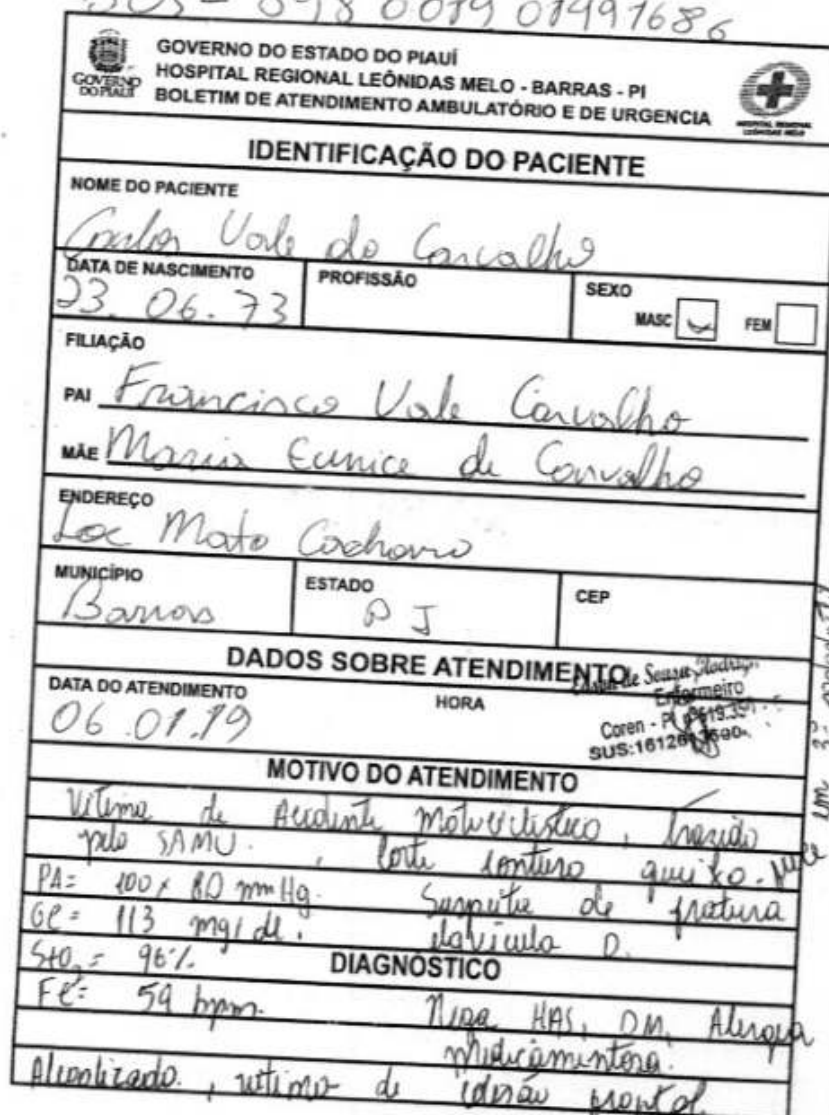 898 0019 01491686
GOVERNO DO ESTADO DO PIAUÍ
HOSPITAL REGIONAL LEÔNIDAS MELO - BARRAS - PI
BOLETIM DE ATENDIMENTO AMBULATÓRIO E DE URGENCIA
GOVERNO
DO PIAUÍ
HOSPITAL REGIONAL
LEÔNIDAS MELO
IDENTIFICAÇÃO DO PACIENTE
NOME DO PACIENTE
Carlos Vale de Carvalho
DATA DE NASCIMENTO
PROFISSÃO
SEXO
23.06.73
MASC
FEM
FILIAÇÃO
PAI Francisco Vale Carvalho
MÃE Maria Eunice de Carvalho
ENDEREÇO
Loc Mato
MUNICÍPIO
ESTADO
CEP
Barras
PI
DADOS SOBRE ATENDIMENTO
DATA DO ATENDIMENTO
HORA
06.01.19
Enfermeiro
Coren - PI
MOTIVO DO ATENDIMENTO
Vitima de Acidente motociclistico, trazido
pelo SAMU. , Corte contuso
PA= 100 x 80 mmHg. Suspeita de fratura
113 mg/dl. clavicula D.
StO2= 96%.
DIAGNÓSTICO
FC= 59 bpm. Nega HAS, DM, Alergia
medicamentosa.
Alcoolizado. , vitima de colisão frontal